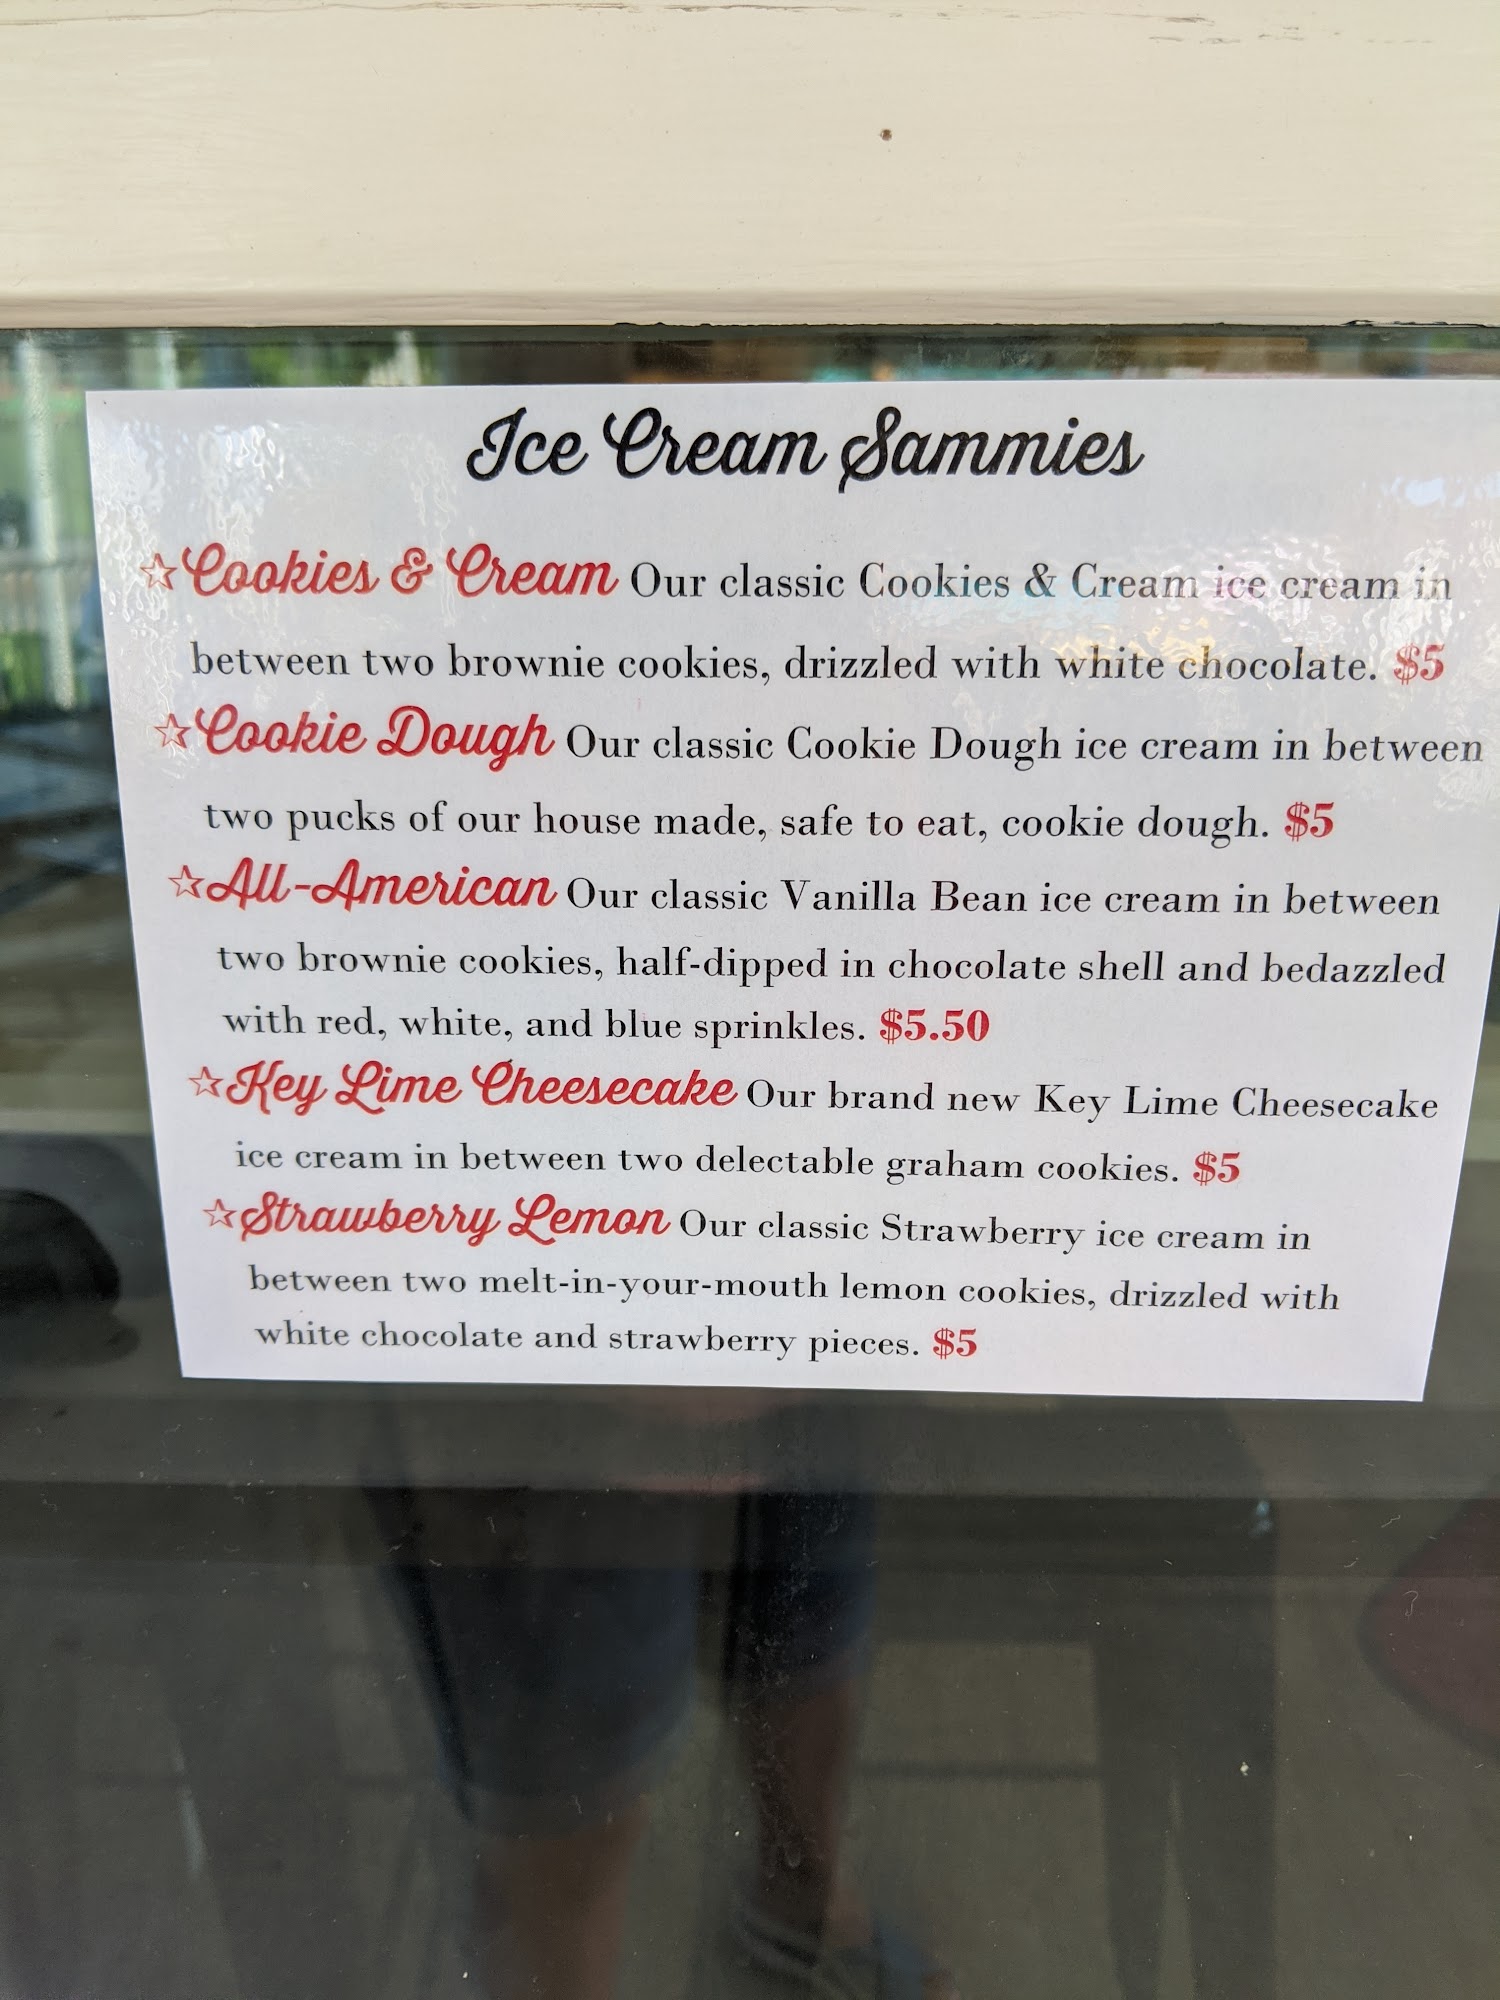 Ice Cream Sammies
☆Cookies & Cream Our classic Cookies & Cream ice cream in
between two brownie cookies, drizzled with white chocolate. $5
☆Cookie Dough Our classic Cookie Dough ice cream in between
two pucks of our house made, safe to eat, cookie dough. $5
☆All-American Our classic Vanilla Bean ice cream in between
two brownie cookies, half-dipped in chocolate shell and bedazzled
with red, white, and blue sprinkles. $5.50
☆Key Lime Cheesecake Our brand new Key Lime Cheesecake
ice cream in between two delectable graham cookies. $5
☆Strawberry Lemon Our classic Strawberry ice cream in
between two melt-in-your-mouth lemon cookies, drizzled with
white chocolate and strawberry pieces. $5